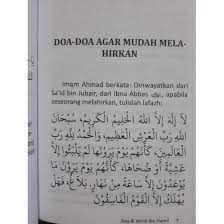 DOA-DOA AGAR MUDAH MELA-
HIRKAN
Imam Ahmad berkata: Diriwayatkan dari
Sa'id bin Jubair, dari Ibnu Abbas, apabila
seseorang melahirkan, tulislah lafazh:
لَا إِلَهَ إِلَّا اللهُ الْحَلِيْمُ الْكَرِيْمُ، سُبْحَانَ
اللهِ رَبِّ الْعَرْشِ الْعَظِيْمِ، وَالْحَمْدُ لِلَّهِ رَبِّ
الْعَالَمِيْنَ، كَأَنَّهُمْ يَوْمَ يَرَوْنَهَا لَمْ يَلْبَثُوْا إِلَّا
عَشِيَّةً أَوْ ضُحَاهَا، كَأَنَّهُمْ يَوْمَ يَرَوْنَ مَا
يُوْعَدُوْنَ لَمْ يَلْبَثُوْا إِلَّا سَاعَةً مِنْ نَهَارٍ، بَلَاغٌ
فَهَلْ يُهْلَكُ إِلَّا الْقَوْمُ الْفَاسِقُوْنَ
Doa & Wirid Ibu Hamil 7